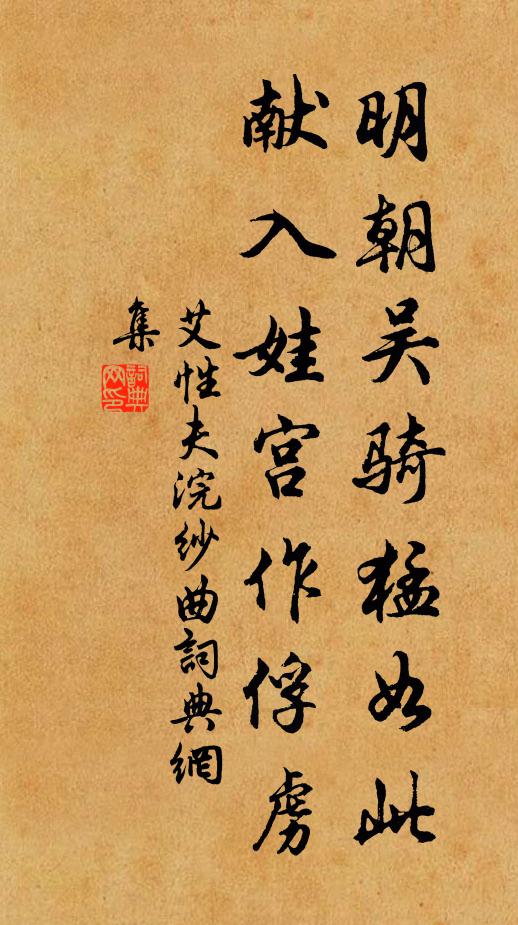 明朝吴骑猛如此
献入娃宫作俘虏
艾性夫浣纱曲詞典網
集
詞典网印